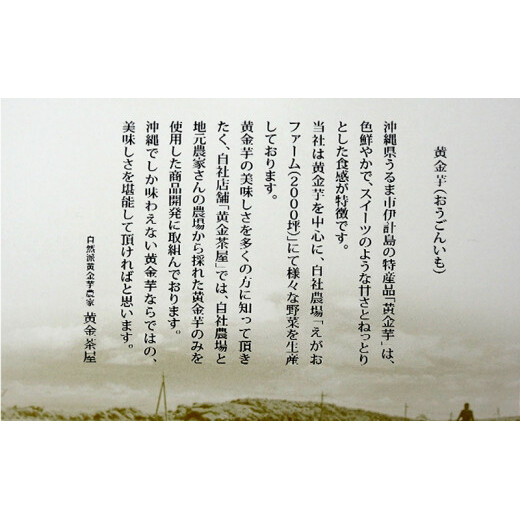 黄金芋(おうごんいも)
沖縄県うるま市伊計島の特産品「黄金芋」は、
色鮮やかで、スイーツのような甘さとねっとり
とした食感が特徴です。
当社は黄金芋を中心に、自社農場「えがお
ファーム(2000坪)」にて様々な野菜を生産
しております。
黄金芋の美味しさを多くの方に知って頂き
たく、自社店舗「黄金茶屋」では、自社農場と
地元農家さんの農場から採れた黄金芋のみを
使用した商品開発に取組んでおります。
沖縄でしか味わえない黄金芋ならではの、
美味しさを堪能して頂ければと思います。
自然派黄金芋農家 黄金茶屋